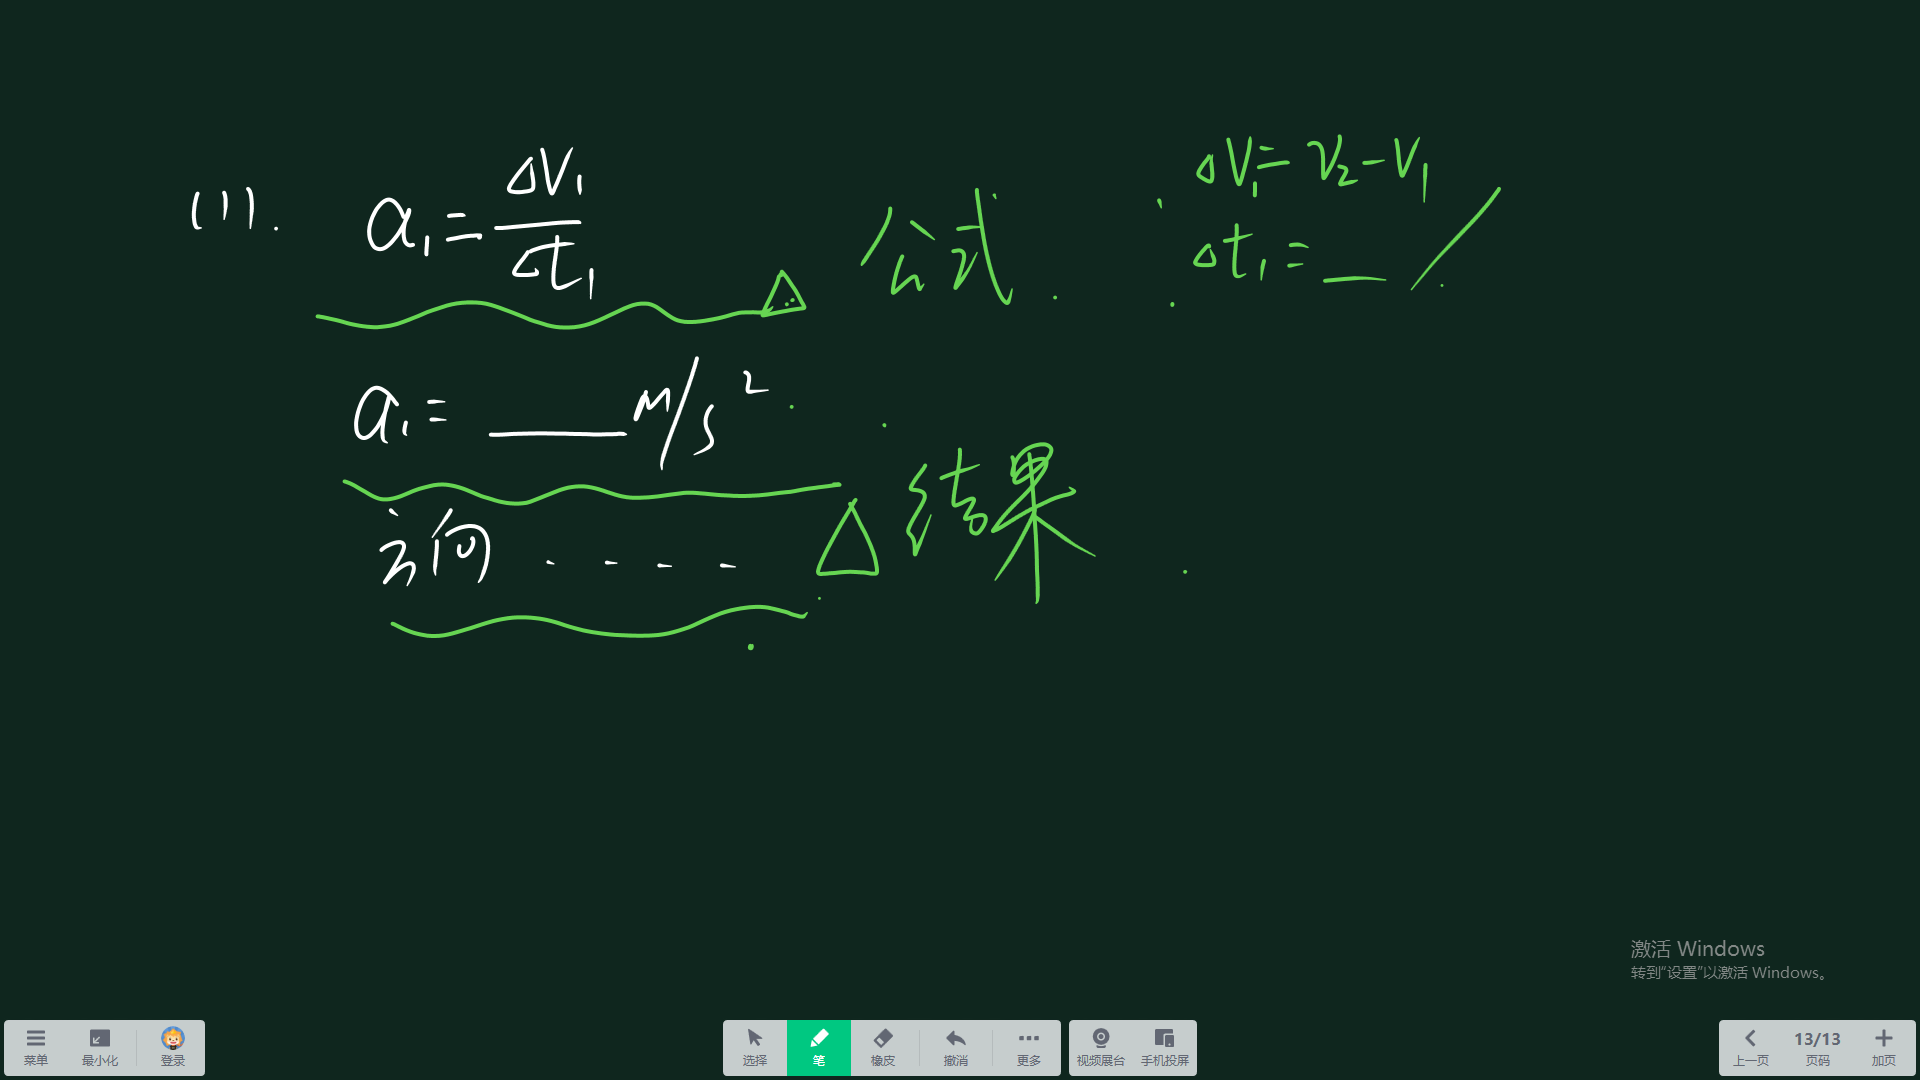 (1). a₁ = ΔV₁/Δt₁
公式
ΔV₁ = V₂ - V₁
Δt₁ = __ /
a₁ = ____ m/s²
结果
方向 . . . .
激活 Windows
转到“设置”以激活 Windows。
菜单 最小化 登录
选择 笔 橡皮 撤消 更多
视频展台 手机投屏
上一页 13/13 页码 加页